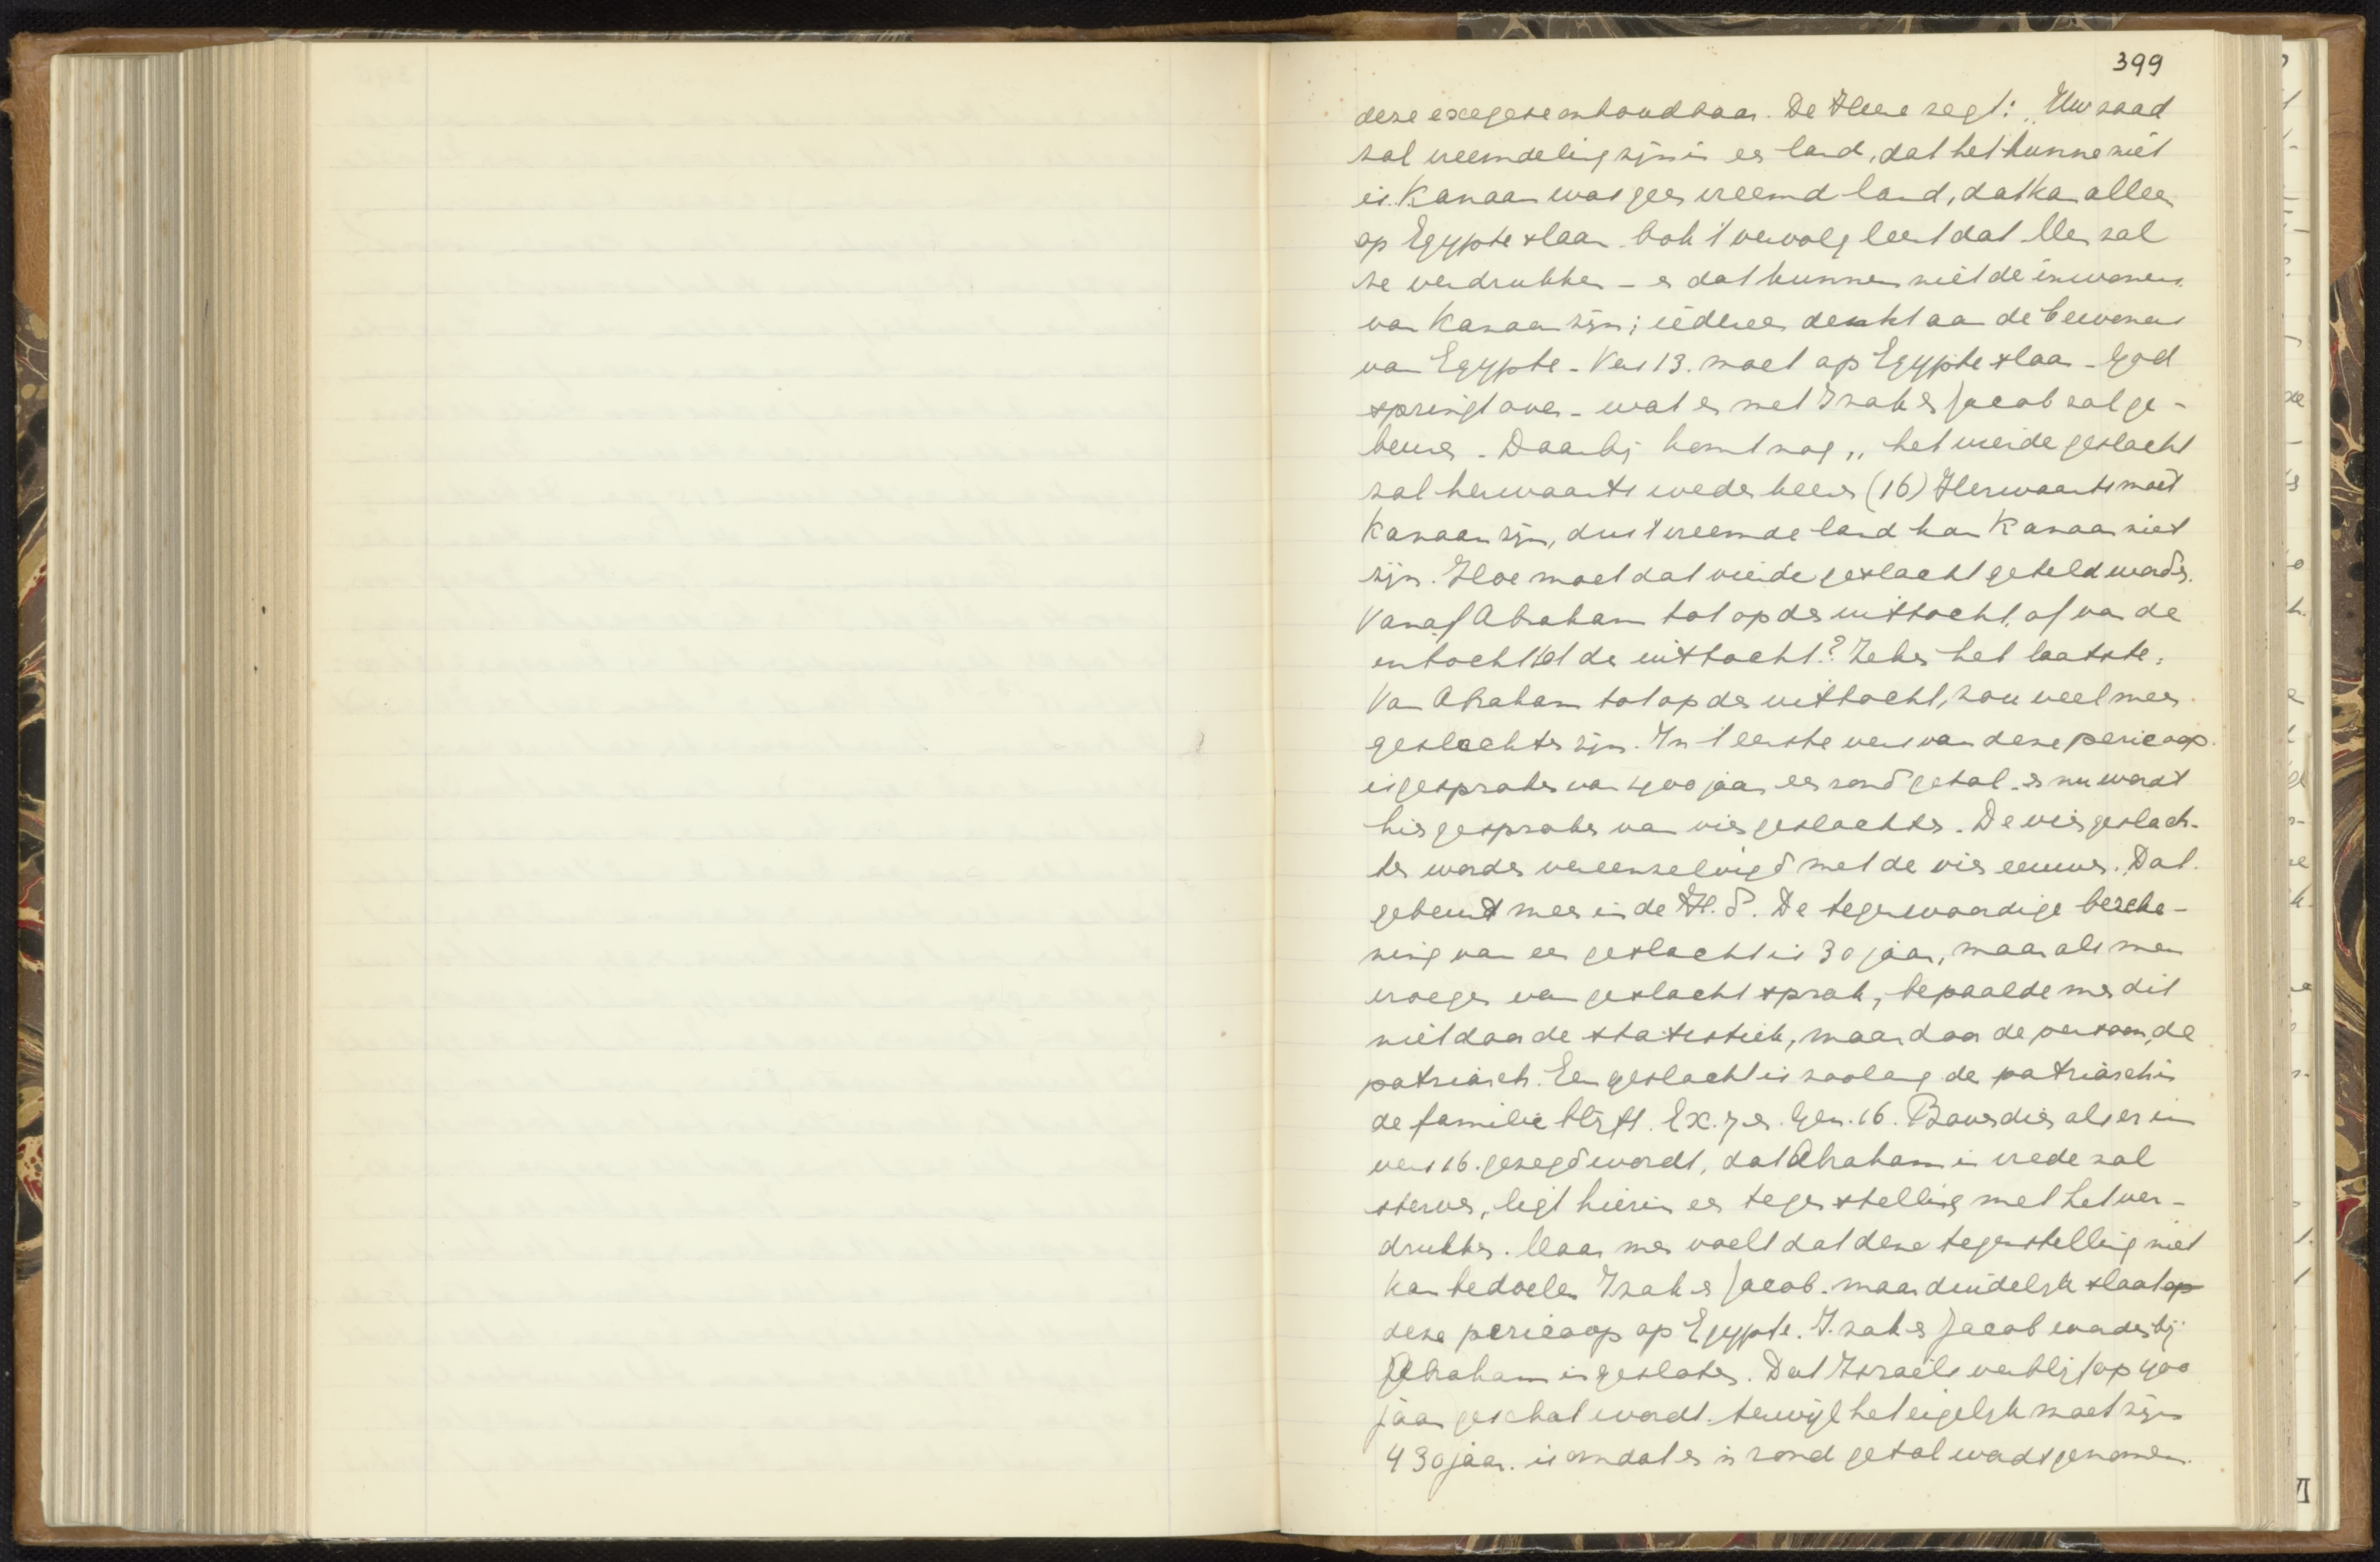 399
deze exegese onhoudbaar. De Heere zegt: „Uw zaad
zal vreemdeling zijn in een land, dat het hunne niet
is. Kanaan was geen vreemd land, dat kan alleen
op Egypte slaan. Ook 't vervolg leert dat. Men zal
ze verdrukken – en dat kunnen niet de inwoners
van Kanaan zijn; iedereen denkt aan de bewoners
van Egypte. Vers 13. moet op Egypte slaan. God
springt over – wat er met Izak en Jacob zal ge-
beuren. Daarbij komt nog „het vierde geslacht
zal herwaarts wederkeeren (16) Herwaarts moet
Kanaan zijn, dus 't vreemde land kan Kanaan niet
zijn. Hoe moet dat vierde geslacht geteld worden.
Vanaf Abraham tot op den uittocht, of van de
intocht tot de uittocht? Zeker het laatste.
Van Abraham tot op den uittocht, zou veel meer
geslachten zijn. In 't eerste vers van deze pericoop
is gesproken van 400 jaar, een rond getal – en nu wordt
hier gesproken van vier geslachten. De vier geslach-
ten worden vereenzelvigd met de vier eeuwen. Dat
gebeurt meer in de H.S. De tegenwoordige bereke-
ning van een geslacht is 30 jaar, maar als men
vroeger van geslacht sprak, bepaalde men dit
niet door de statistiek, maar door de persoon, de
patriarch. Een geslacht is zoolang de patriarch in
de familie blijft. Ex. 7 en Gen. 16. Bovendien als er in
vers 16. gezegd wordt, dat Abraham in vrede zal
sterven, ligt hierin een tegenstelling met het ver-
drukken. Maar men voelt dat deze tegenstelling niet
kan bedoelen Izak en Jacob. maar duidelijk slaat op
deze pericoop op Egypte. Izak en Jacob worden bij
Abraham ingesloten. Dat Israëls verblijf op 400
jaar geschat wordt. terwijl het eigenlijk moet zijn
430 jaar. is omdat er 'n rond getal wordt genomen.